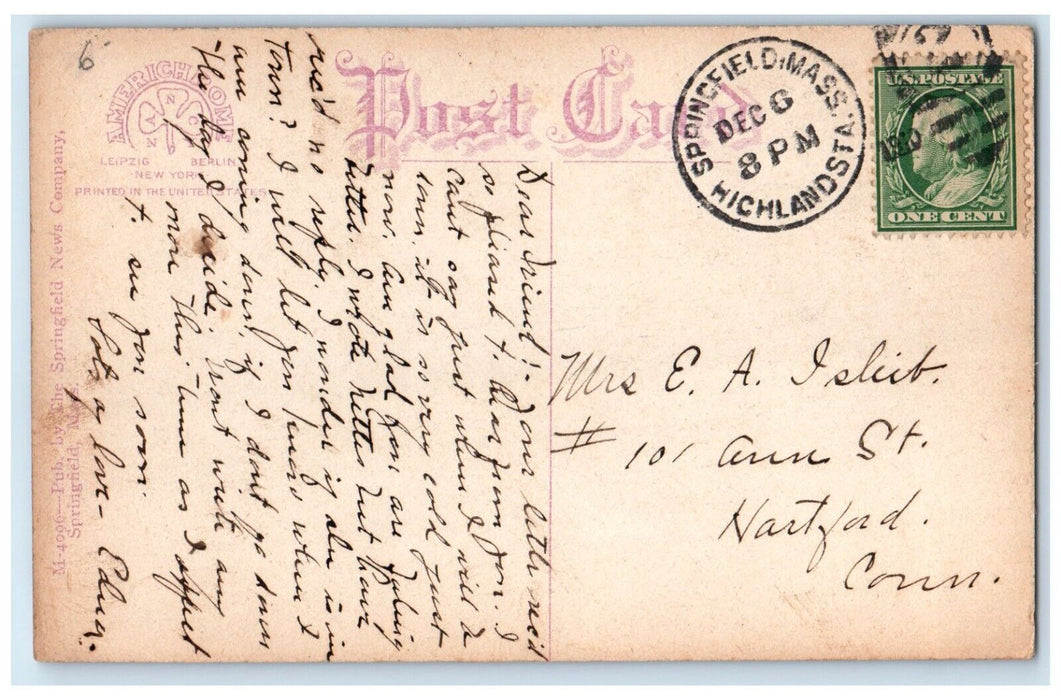 6
AMERICHROME
LEIPZIG BERLIN
NEW YORK
PRINTED IN THE UNITED STATES
Post Card
SPRINGFIELD, MASS.
DEC 6
8 PM
HIGHLAND STA.
U.S. POSTAGE
ONE CENT
M-4096—Pub. by The Springfield News Company,
Springfield, Mass.
Dear Friend:- Your letter rec'd
so pleased to hear from you. I
cant say just when I will be
down, it is so very cold just
now. Am glad you are feeling
better. I wrote Nettie but have
rec'd no reply. I wonder if she is in
Town? I will let you know when I
am coming down, if I don't go down
the day I decide. Wont write any
more this time as I expect
to see you soon.
Lots of love - Edna.
Mrs E. A. Isleib.
# 101 Ann St.
Hartford.
Conn.